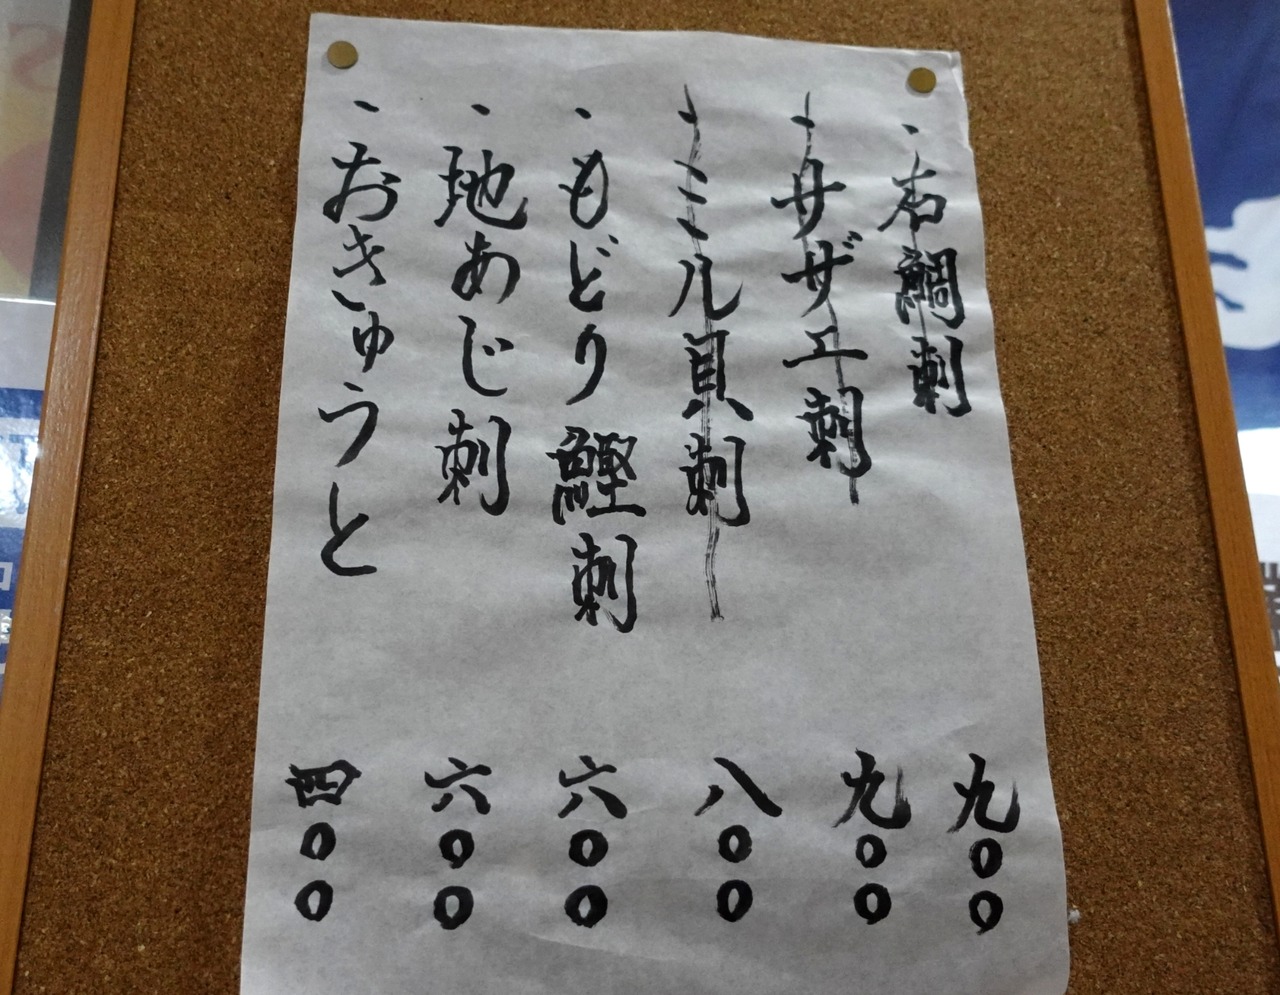 、石鯛刺 九〇〇
、サザエ刺 九〇〇
、ミル貝刺 八〇〇
、もどり鰹刺 六〇〇
、地あじ刺 六〇〇
、おきゅうと 四〇〇